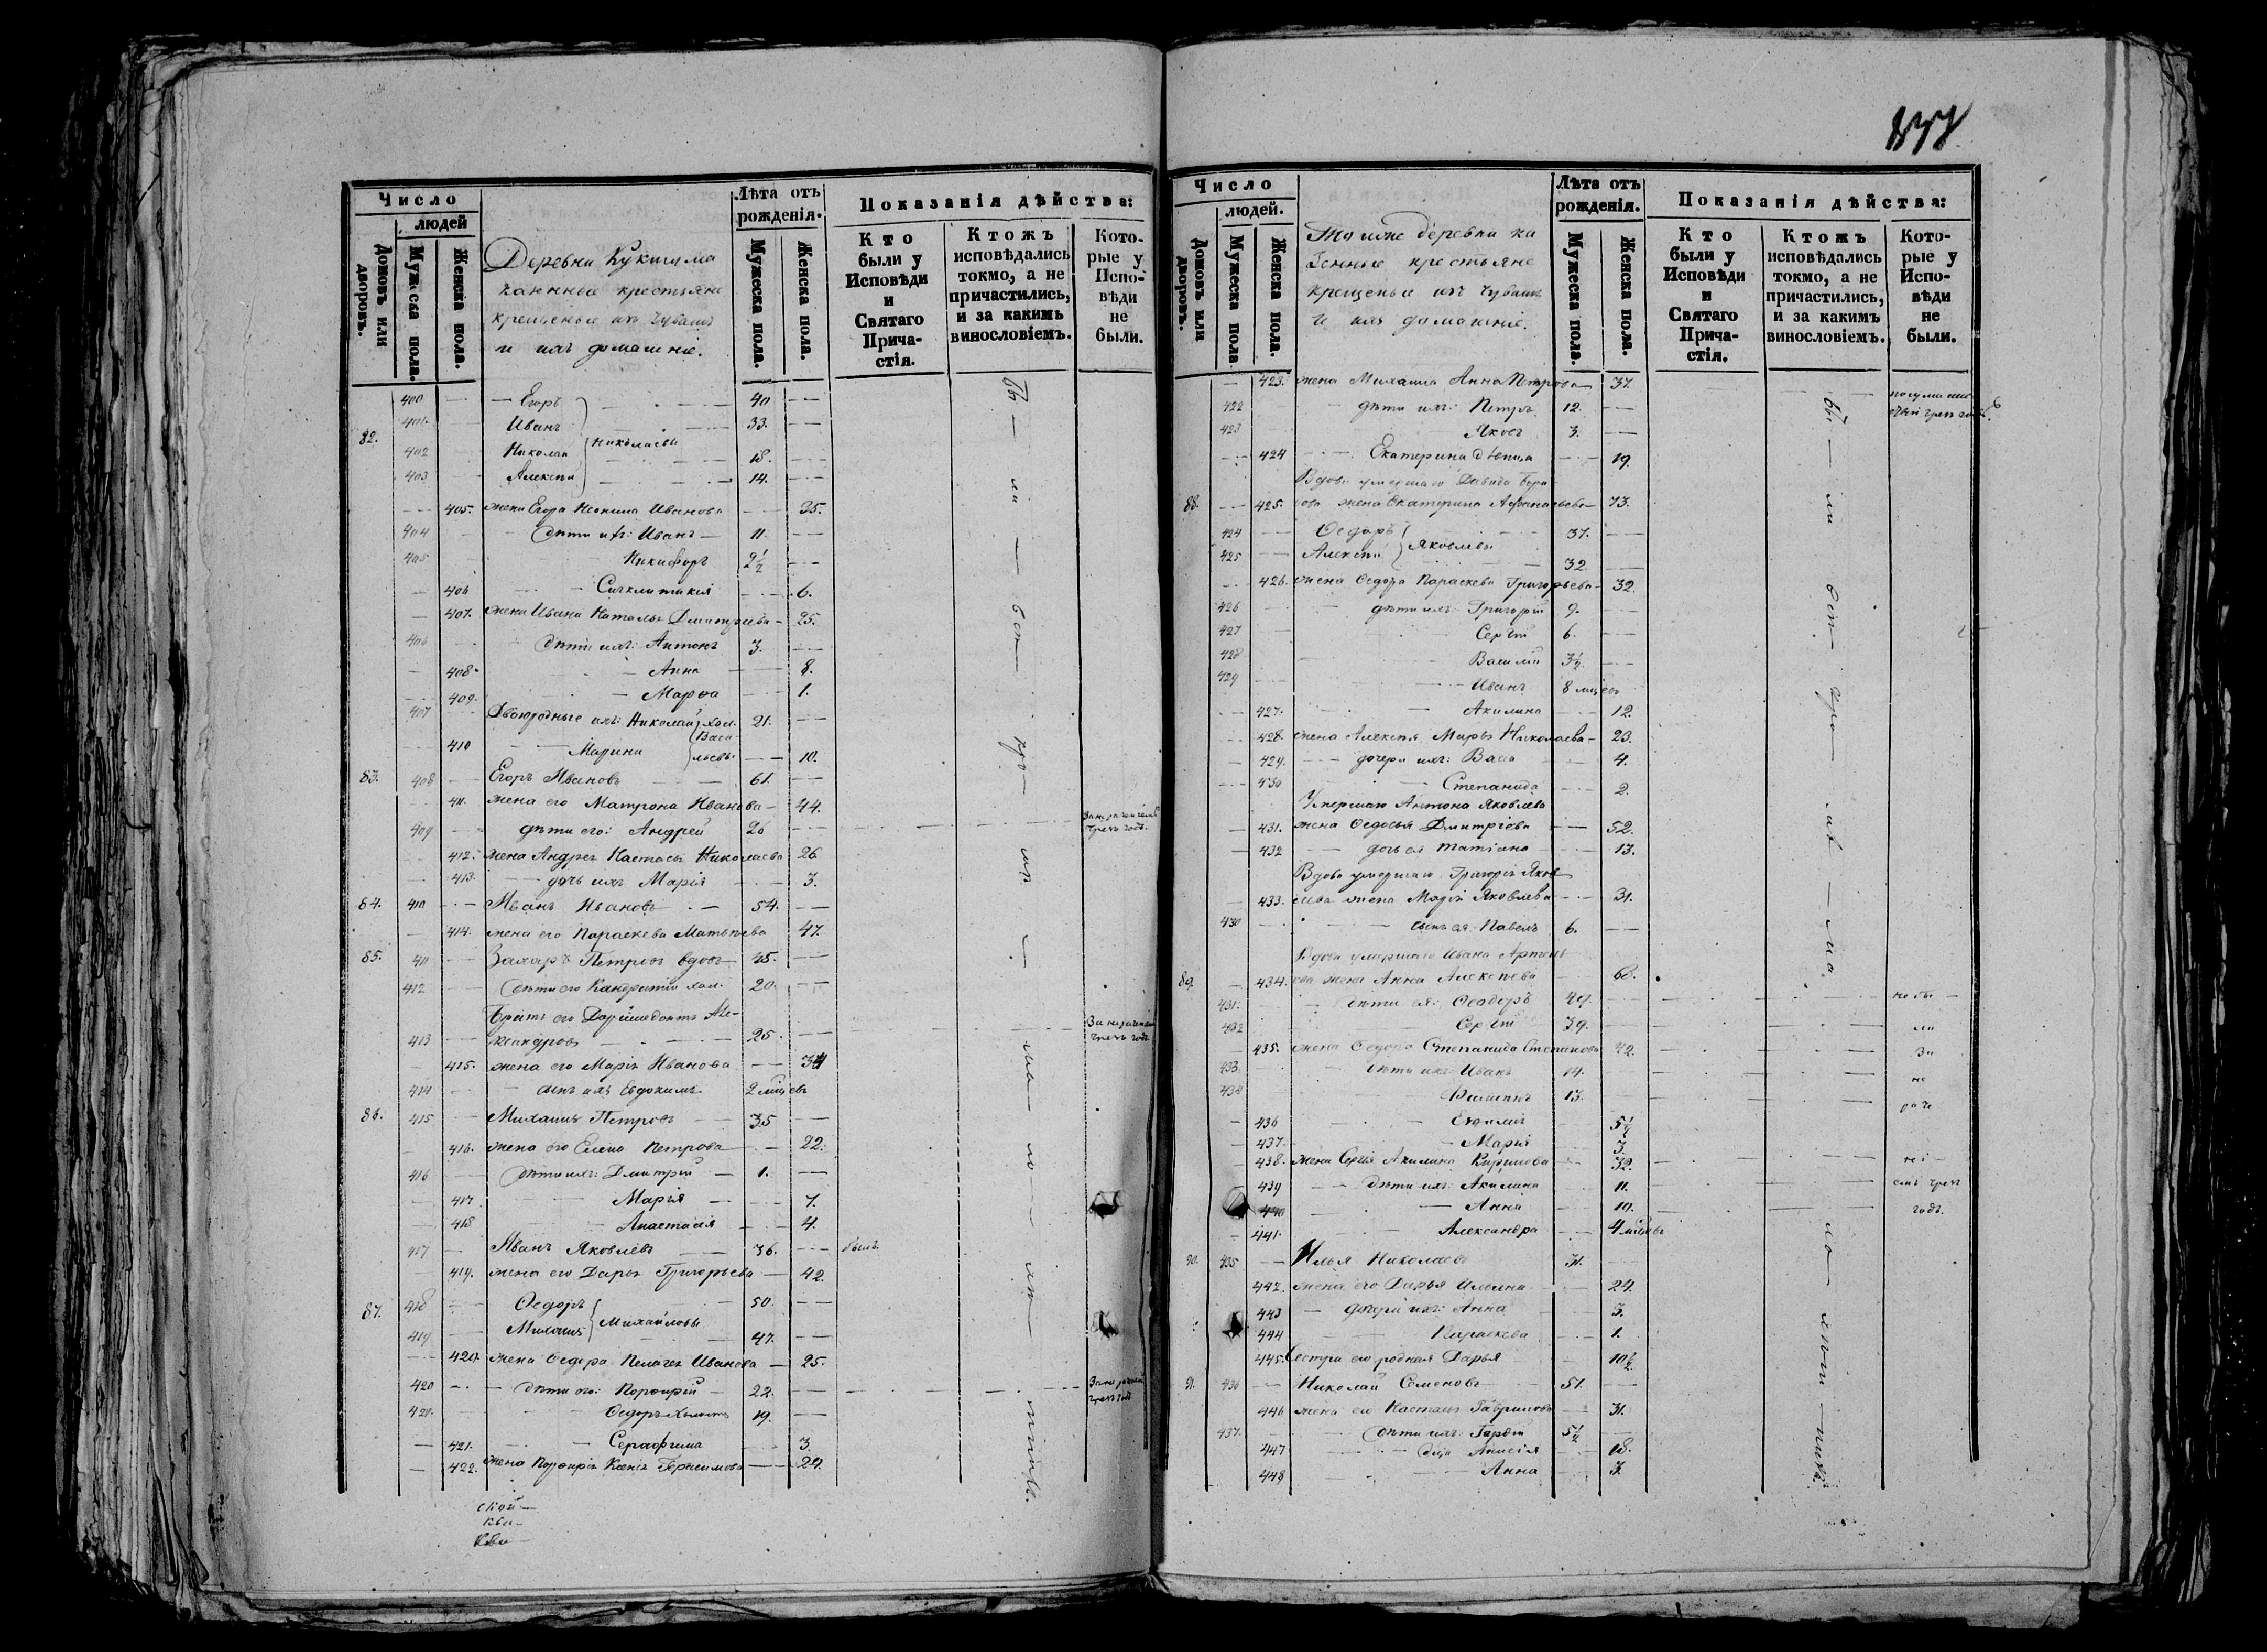 Число
людей
Домовъ или дворовъ.
Мужеска пола.
Женска пола.
Деревни Кукшума
казенные крестьяне
крещеные изъ чувашъ
и ихъ домашніе.
Лѣта отъ рожденія.
Мужеска пола.
Женска пола.
Показанія дѣйства:
Кто были у Исповѣди и Святаго Причастія.
Ктожъ исповѣдались токмо, а не причастились, и за какимъ винословіемъ.
Которые у Исповѣди не были.
400 Егоръ 40
401. Иванъ 33.
82. Николаевы
402 Николай 18.
403 Алексѣй 14.
405. жена Егора Неонила Иванова 35.
404 дѣти ихъ: Иванъ 11
405 Никифоръ 2½
406 Сигклитикія 6.
407. жена Ивана Наталья Дмитріева 25.
406 дѣти ихъ: Антонъ 3.
408 Анна 8.
409. Марѳа 1.
407 Двоюродные ихъ: Николай хол. 21.
Васильевы
410 Марина 10.
83. 408 Егоръ Ивановъ 61.
411. жена его Матрона Иванова 44.
409 дѣти его: Андрей 26
412. жена Андрея Настасья Николаева 26
413. дочь ихъ Марія 3.
84. 410 Иванъ Ивановъ 54.
414. жена его Параскева Матвѣева 47.
85. 411 Захаръ Петровъ вдовъ 45.
412 дѣти его Кандратій хол. 20.
Братъ его Доримедонтъ Але-
413 ксандровъ 25.
415. жена его Марія Иванова 34
414 сынъ ихъ Евдокимъ 2 мцевъ
86. 415 Михаилъ Петровъ 35
416. жена его Елена Петрова 22.
416 дѣти ихъ: Дмитрій 1.
417 Марія 7.
418 Анастасія 4.
417 Иванъ Яковлевъ 36. былъ.
419. жена его Дарья Григорьева 42.
87. 418 Ѳедоръ 50.
Михайловы
419 Михаилъ 47.
420. жена Ѳедора Пелагея Иванова 25.
420 дѣти его: Порфирій 22.
421. Ѳедоръ холостъ 19.
421. Серафима 3.
422. жена Порфирія Ксенія Герасимова 24.
Число
людей.
Домовъ или дворовъ.
Мужеска пола
Женска пола.
Тоіже деревни ка
зенные крестьяне
крещеные изъ чувашъ
и ихъ домашніе.
Лѣта отъ рожденія.
Мужеска пола.
Женска пола.
Показанія дѣйства:
Кто были у Исповѣди и Святаго Причастія.
Ктожъ исповѣдались токмо, а не причастились, и за какимъ винословіемъ.
Которые у Исповѣди не были.
423. жена Михаила Анна Петрова 37.
422 дѣти ихъ: Петръ 12.
423 Яковъ 3.
424 Екатерина дѣвица 19.
Вдова умершаго Давида
88. 425. жена Екатерина Афанасьева 73.
424 Ѳедоръ 37.
Яковлевы
425 Алексѣй 32
426. жена Ѳедора Параскева Григорьева 32.
426 дѣти ихъ: Григорій 9.
427 Сергѣй 6.
428 Василій 3½.
429 Иванъ 8 мцевъ
427. Акилина 12.
428. жена Алексѣя Марья Николаева 23.
429. дочери ихъ: Васса 4.
430 Степанида 2.
Умершаго Антона Яковлева
431. жена Ѳедосья Дмитріева 52.
432 дочь ея Татіана 13.
Вдова умершаго Григорія Яков
433. лева жена Марія Яковлева 31.
430 сынъ ея Павелъ 6.
Вдова умершаго Ивана Артемь
89. 434. ева жена Анна Алексѣева 68.
431. дѣти ея: Ѳеодоръ 49.
432 Сергѣй 39.
435. жена Ѳедора Степанида Степанова 42.
433. дѣти ихъ Иванъ 14.
434 Филиппъ 13.
436 Евфимія 5½
437. Марія 3.
438. жена Сергѣя Акилина Кирилова 32.
439 дѣти ихъ: Акилина 11.
440 Анна 10.
441. Александра 4 мцевъ
90. 435 Илья Николаевъ 31.
442. жена его Дарья Ильина 24.
443 дочери ихъ: Анна 3.
444 Параскева 1.
445. Сестра его родная Дарья 10½
91. 436 Николай Семеновъ 51.
446 жена его Настасья Гаврилова 31.
437. дѣти ихъ: Гордій 5½
447 дца Анисія 18.
448 Анна 3.